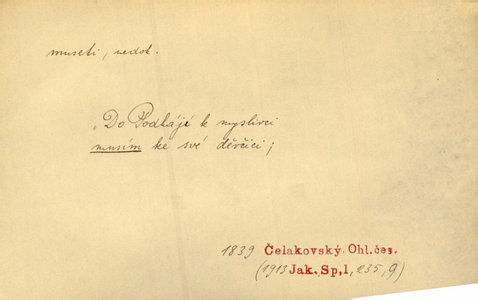 museti, nedok.
„Do Podhájí k myslivci
musím ke své děvčici;
1839 Čelakovský. Ohl.čes.
(1913 Jak. Sp, 1, 235, 9)